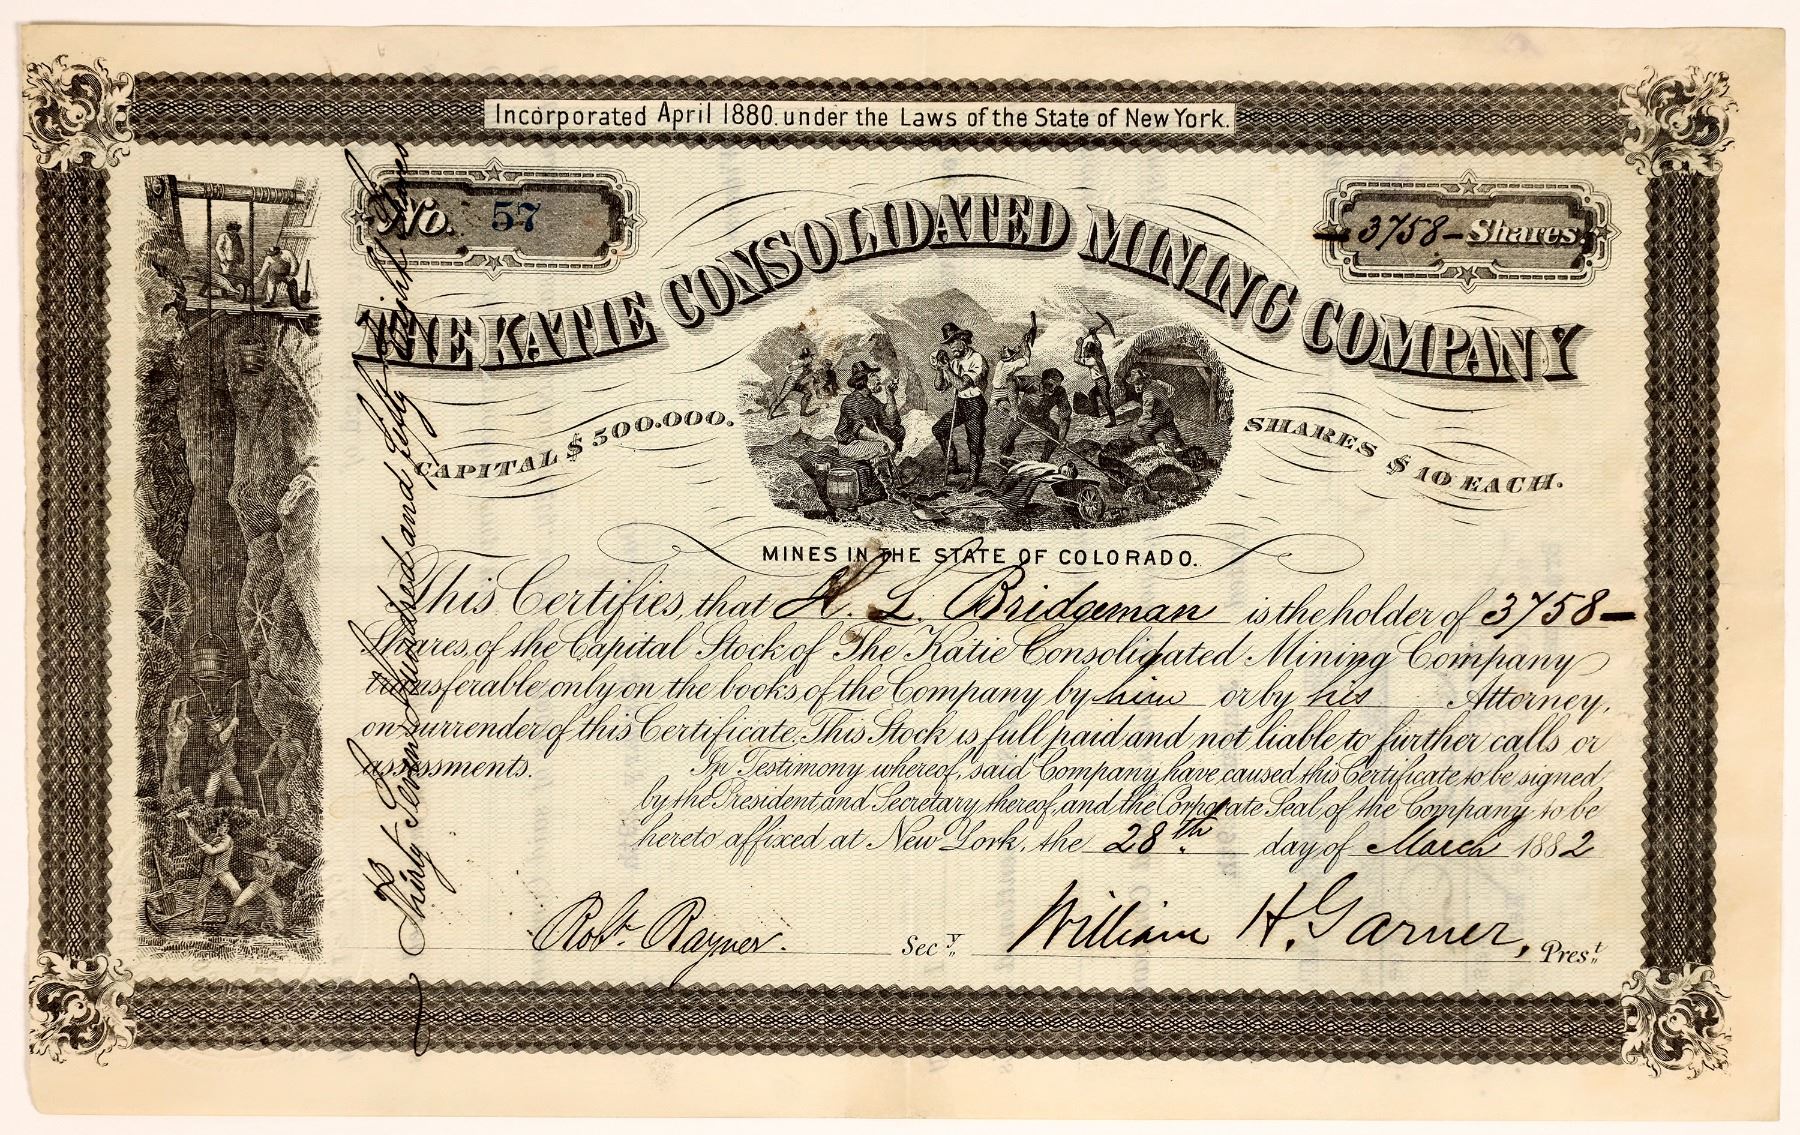 Incorporated April 1880. under the Laws of the State of New York.
No. 57
3758 – Shares
THE KATIE CONSOLIDATED MINING COMPANY
CAPITAL $500.000.
SHARES $10 EACH.
MINES IN THE STATE OF COLORADO.
This Certifies, that H. L. Bridgeman is the holder of 3758 –
Shares of the Capital Stock of The Katie Consolidated Mining Company
transferable only on the books of the Company by him or by his Attorney,
on surrender of this Certificate. This Stock is full paid and not liable to further calls or
assessments. In Testimony whereof, said Company have caused this Certificate to be signed
by the President and Secretary thereof, and the Corporate Seal of the Company to be
hereto affixed at New York, the 28th. day of March 1882
Robt. Rayner. Secy. William H. Garner, Prest.
Thirty Seven Hundred and Fifty Eight Shares